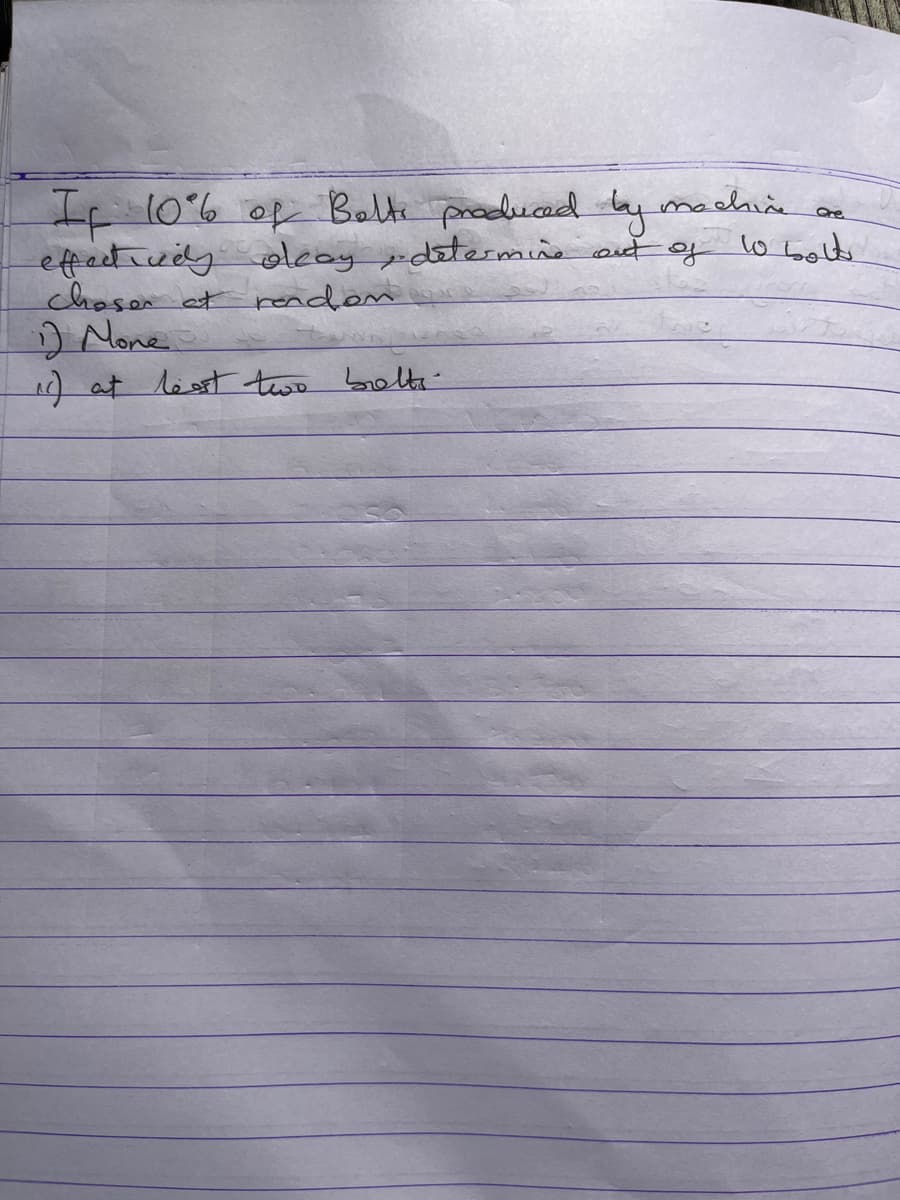 If 10% of Bolts produced by machine are
effectively okay, determine out of 10 bolts
chosen at random
i) None
ii) at least two bolts.